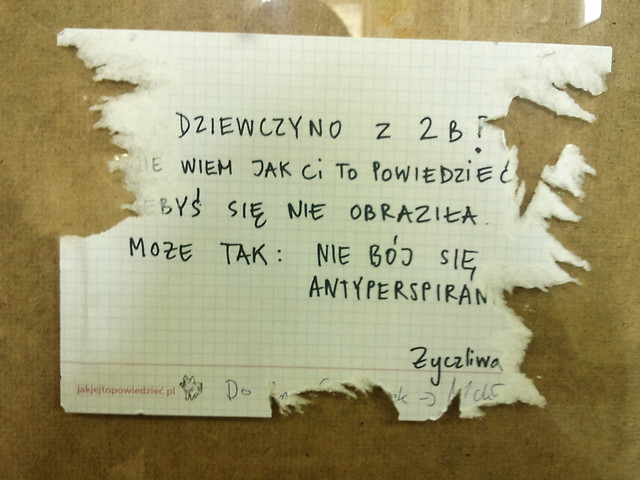 DZIEWCZYNO Z 2B!
WIEM JAK CI TO POWIEDZIEĆ
SIĘ NIE OBRAZIŁA.
MOŻE TAK: NIE BÓJ SIĘ
Życzliwa
jakjejtopowiedzieć.pl Do